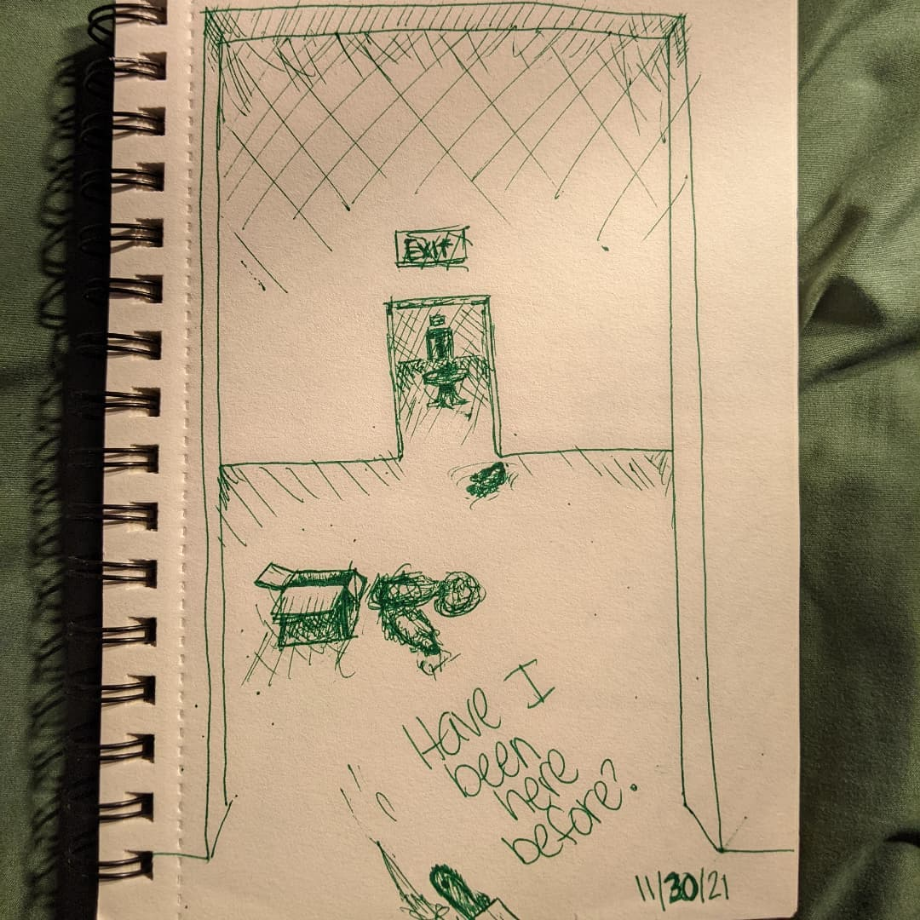 Exit
Have I
been
here
before?
11/30/21